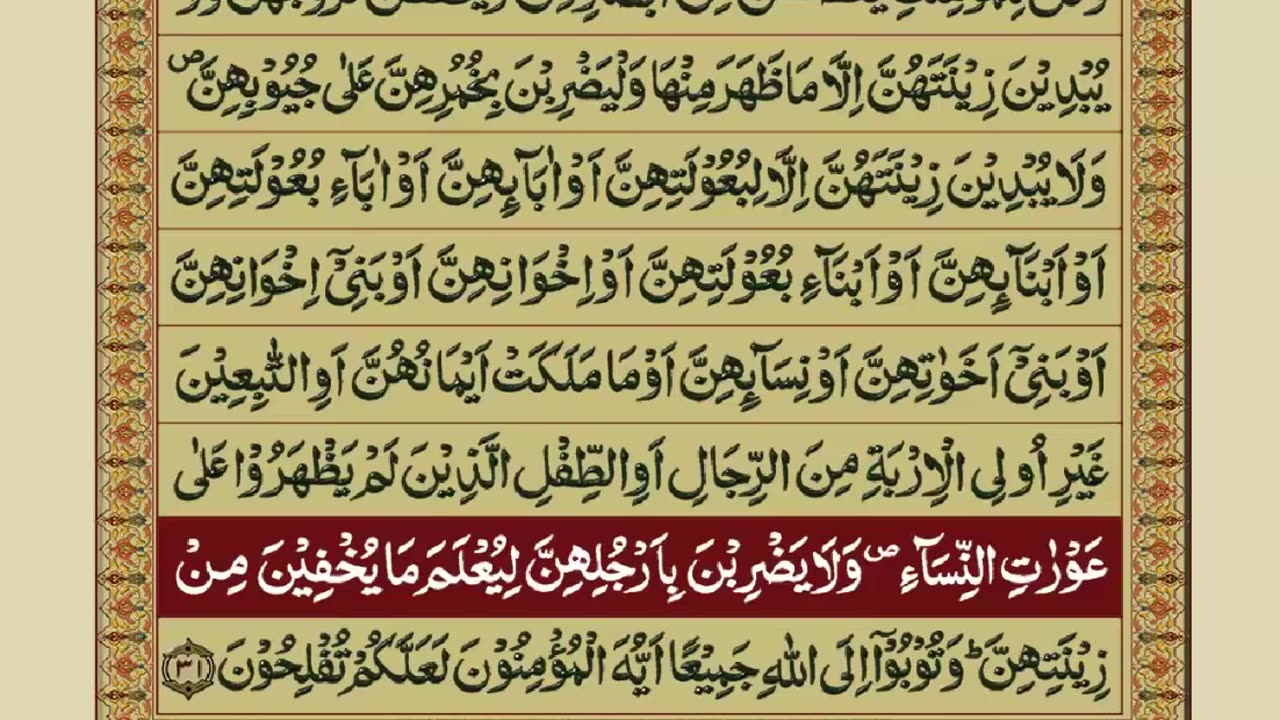 یُبْدِیْنَ زِیْنَتَهُنَّ اِلَّا مَا ظَهَرَ مِنْهَا وَلْیَضْرِبْنَ بِخُمُرِهِنَّ عَلٰی جُیُوْبِهِنَّ ۪
وَلَا یُبْدِیْنَ زِیْنَتَهُنَّ اِلَّا لِبُعُوْلَتِهِنَّ اَوْ اٰبَآىِٕهِنَّ اَوْ اٰبَآءِ بُعُوْلَتِهِنَّ
اَوْ اَبْنَآىِٕهِنَّ اَوْ اَبْنَآءِ بُعُوْلَتِهِنَّ اَوْ اِخْوَانِهِنَّ اَوْ بَنِیْۤ اِخْوَانِهِنَّ
اَوْ بَنِیْۤ اَخَوٰتِهِنَّ اَوْ نِسَآىِٕهِنَّ اَوْ مَا مَلَكَتْ اَیْمَانُهُنَّ اَوِ التّٰبِعِیْنَ
غَیْرِ اُولِی الْاِرْبَةِ مِنَ الرِّجَالِ اَوِ الطِّفْلِ الَّذِیْنَ لَمْ یَظْهَرُوْا عَلٰی
عَوْرٰتِ النِّسَآءِ ۪ وَلَا یَضْرِبْنَ بِاَرْجُلِهِنَّ لِیُعْلَمَ مَا یُخْفِیْنَ مِنْ
زِیْنَتِهِنَّ ؕ وَتُوْبُوْۤا اِلَی اللّٰهِ جَمِیْعًا اَیُّهَ الْمُؤْمِنُوْنَ لَعَلَّكُمْ تُفْلِحُوْنَ ۝۳۱